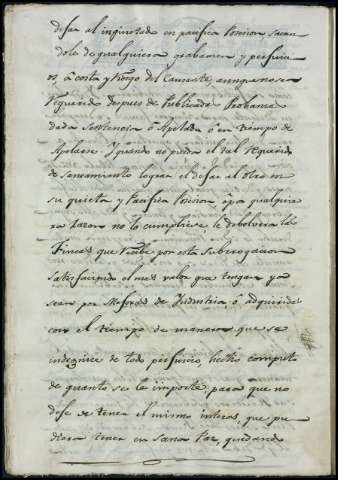 dejar al inquietado en pacifica Posesion sacan
dole de qualquiera grabamen y perjuici
os, á costa y riesgo del Causante, aunque no sea
requerido despues de Publicada Probanza
dada Sentencia ó Apelada ó en tiempo de
Apelarse. Y quando no pueda el tal requerido
de saneamiento lograr el dejar al otro en
su quieta y Pacifica Posesion ó por qualquie
ra razon no lo cumpliese le debolvera la
Fincas que recibe por esta Subrogacion
satisfaciendo el mas valor que tengan ya
sean por Mejoras de Industria ó adquirida
con el tiempo de manera que se
indegnice de todo perjuicio, hecho computo
de quanto se le importe para que no
deje de tener el mismo interes, que pu
diera tener en Sana Paz, quedando